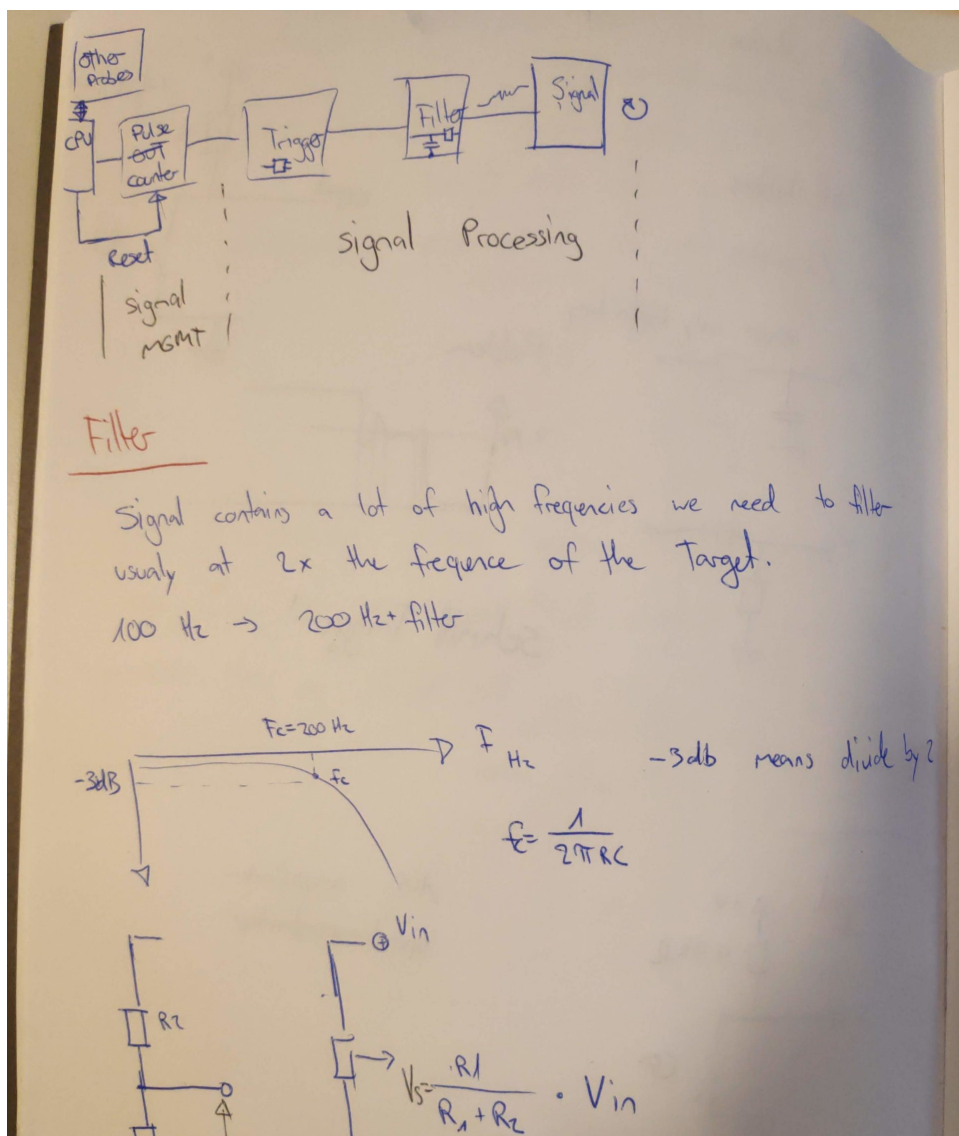 Other
Probes
CPU
Pulse
OUT
counter
Trigger
Filter
Signal
Reset
signal
MGMT
signal Processing
Filter
Signal contains a lot of high frequencies we need to filter
usualy at 2x the frequence of the Target.
100 Hz → 200 Hz+ filter
Fc=200 Hz
F Hz
-3dB
fc
-3db means divide by 2
fc= 1 / 2πRC
Vin
R2
Vs= R1 / R1 + R2 · Vin